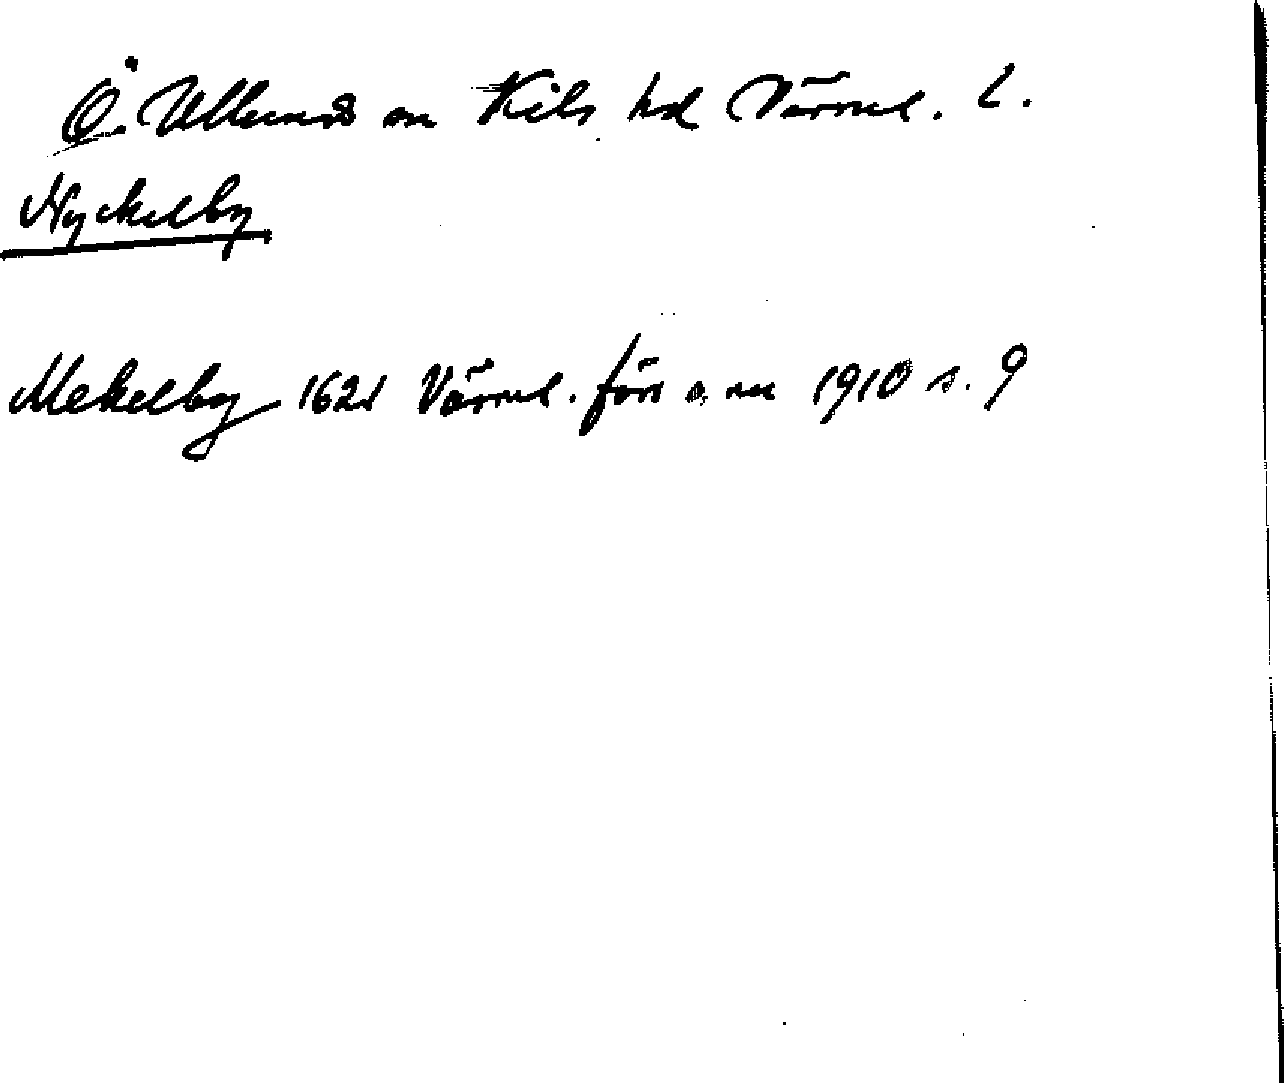 Ö. Ullerud sn Kils hd Värml. L.
Nyckelby
Mekelby 1621 Värml. förr o. nu 1910 s. 9